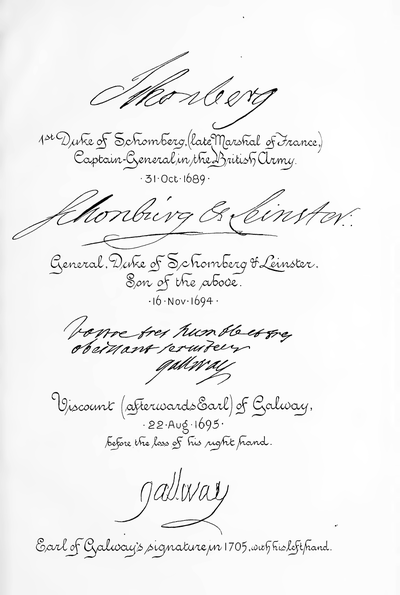 Schonberg
1st Duke of Schomberg, (late Marshal of France,)
Captain-General, in the British Army.
· 31 · Oct · 1689 ·
Schonbúrg & Leinster:.
General. Duke of Schomberg & Leinster.
Son of the above.
· 16 · Nov · 1694 ·
Vostre tres humble et tres
obeissant serviteur
gallway
Viscount (afterwards Earl) of Galway,
· 22 · Aug · 1695 ·
before the loss of his right hand.
gallway
Earl of Galway's signature, in 1705, with his left hand.